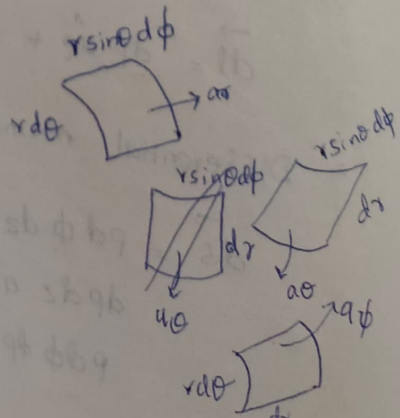 r sinθ dϕ
r dθ
ar
r sinθ dϕ
r sinθ dϕ
dr
dr
aθ
aθ
aϕ
r dθ
dr